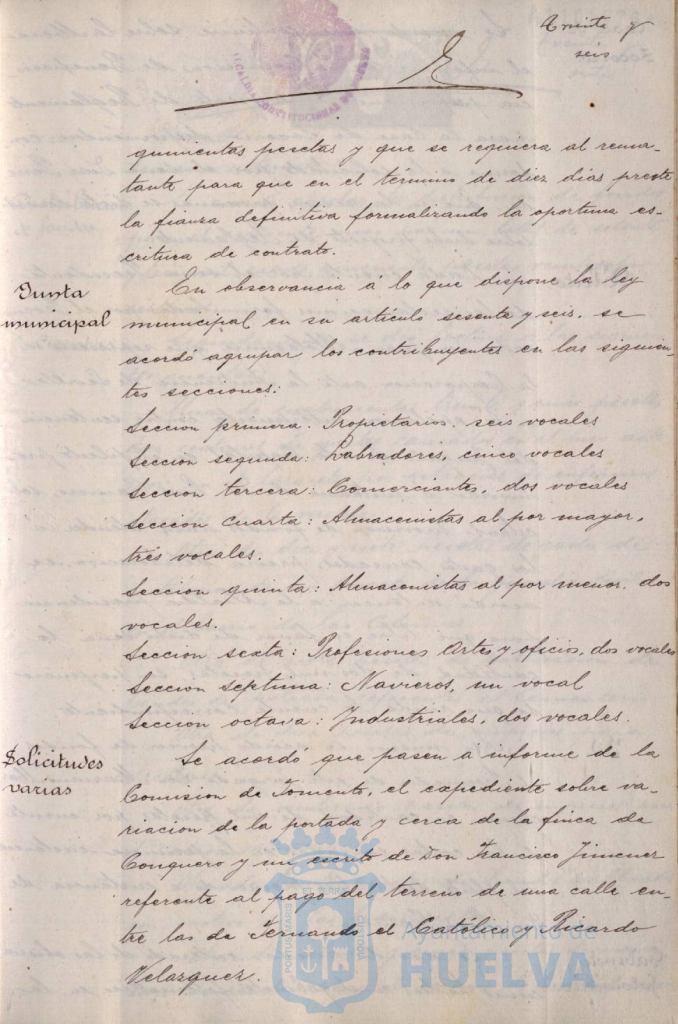 Treinta y
seis
quinientas pesetas y que se requiera al rema-
tante para que en el término de diez dias preste
la fianza definitiva formalizando la oportuna es-
critura de contrato.
Junta
municipal
En observancia á lo que dispone la ley
municipal en su artículo sesenta y seis, se
acordó agrupar los contribuyentes en las siguien-
tes secciones:
Seccion primera. Propietarios. seis vocales
Seccion segunda: Labradores, cinco vocales
Seccion tercera: Comerciantes, dos vocales
Seccion cuarta: Almacenistas al por mayor,
trés vocales.
Seccion quinta: Almacenistas al por menor. dos
vocales.
Seccion sexta: Profesiones Artes y oficios, dos vocales
Seccion septima: Navieros, un vocal
Seccion octava: Industriales, dos vocales.
Solicitudes
varias
Se acordó que pasen á informe de la
Comision de Fomento, el expediente sobre va-
riacion de la portada y cerca de la finca de
Conquero y un escrito de Don Francisco Jimenez
referente al pago del terreno de una calle en-
tre las de Fernando el Católico y Ricardo
Velazquez.
Ayuntamiento de
HUELVA